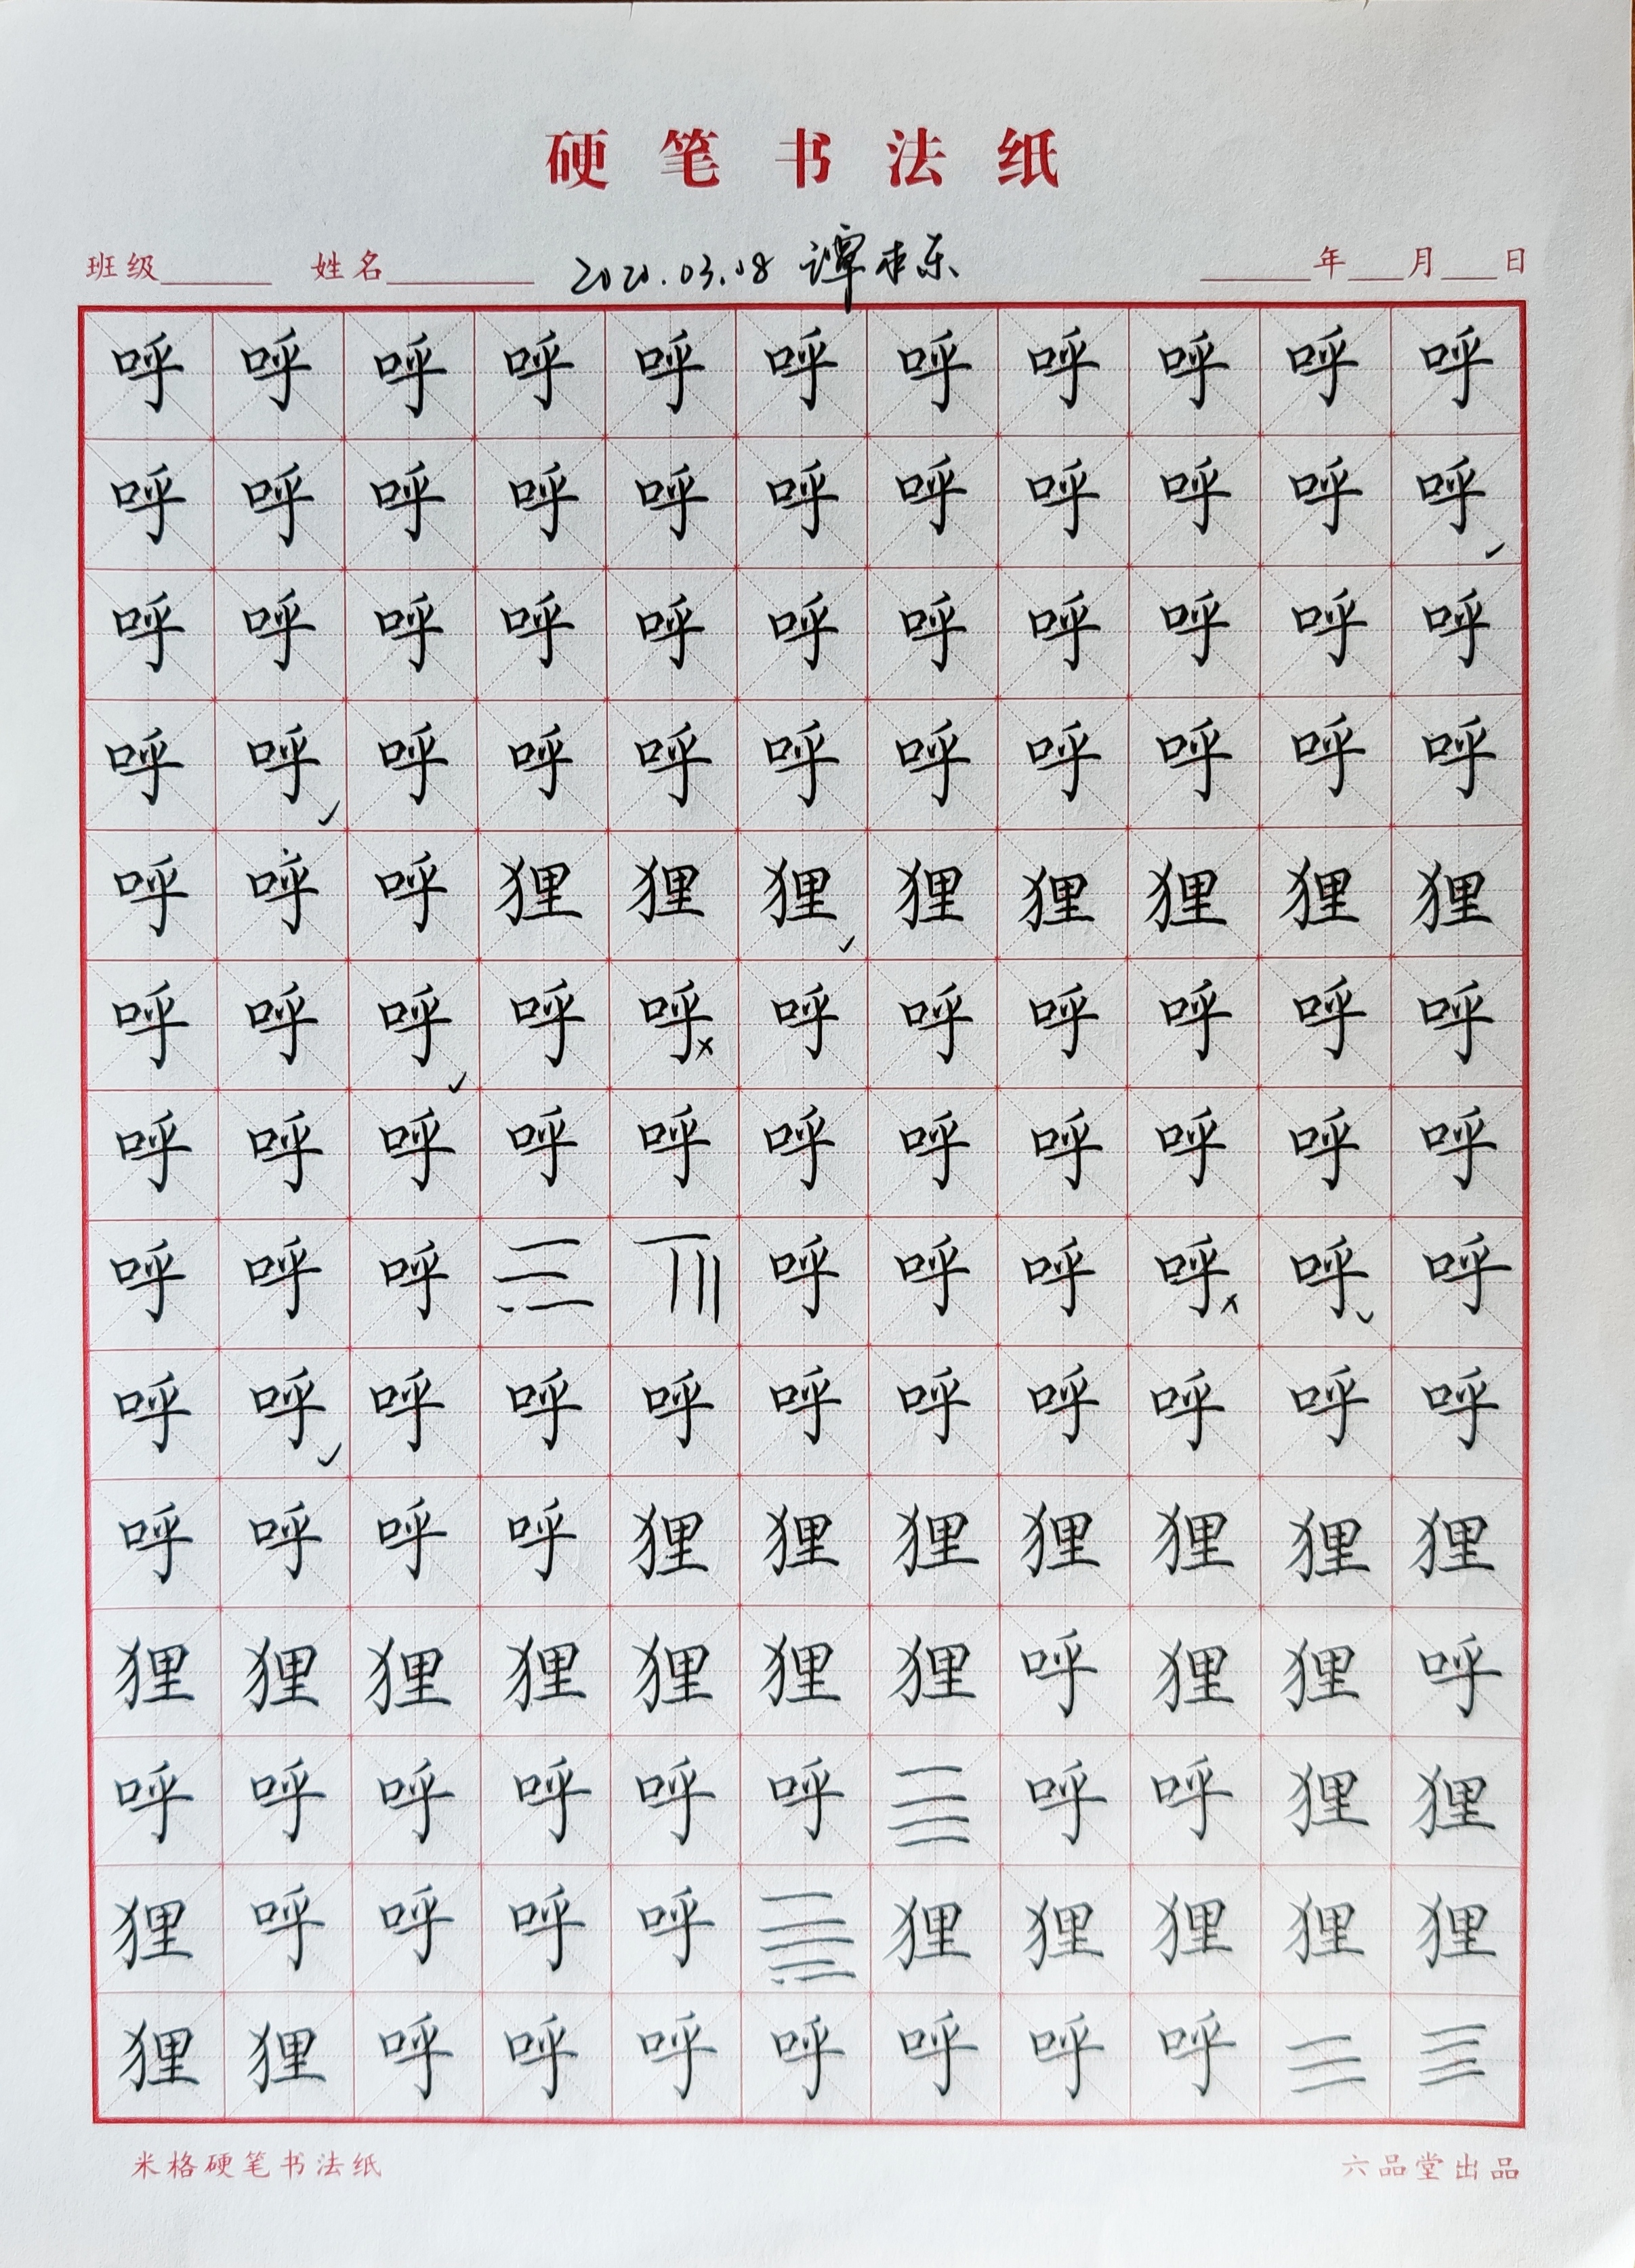 硬笔书法纸
班级 姓名 2020.03.08 谭 东 年 月 日
呼呼呼呼呼呼呼呼呼呼呼
呼呼呼呼呼呼呼呼呼呼呼
呼呼呼呼呼呼呼呼呼呼呼
呼呼呼呼呼呼呼呼呼呼呼
呼呼呼狸狸狸狸狸狸狸狸
呼呼呼呼呼呼呼呼呼呼呼
呼呼呼呼呼呼呼呼呼呼呼
呼呼呼呼呼呼呼呼呼
呼呼呼呼呼呼呼呼呼呼呼
呼呼呼呼狸狸狸狸狸狸狸
狸狸狸狸狸狸狸呼狸狸呼
呼呼呼呼呼呼呼呼狸狸
狸呼呼呼呼狸狸狸狸狸
狸狸呼呼呼呼呼呼呼
米格硬笔书法纸 六品堂出品